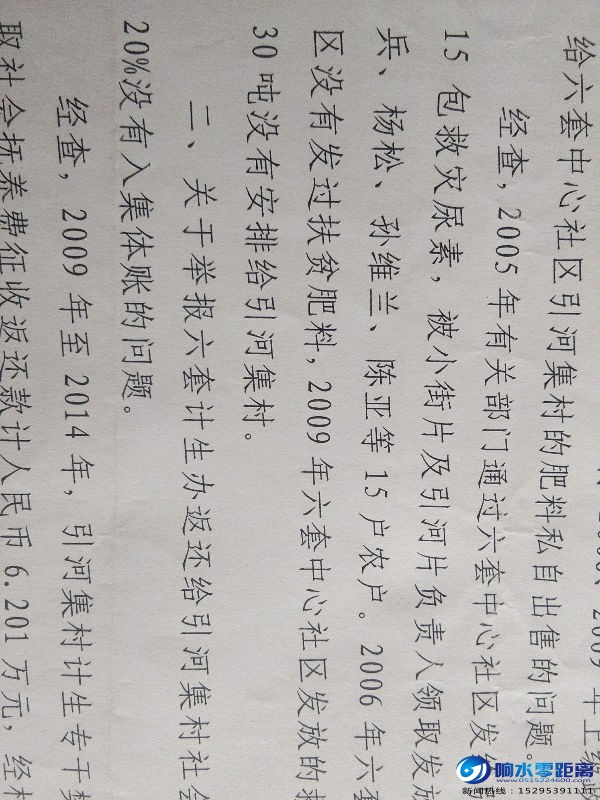 2009 年上级
给六套中心社区引河集村的肥料私自出售的问题。
经查，2005 年有关部门通过六套中心社区发
15 包救灾尿素，被小街片及引河片负责人领取发放
兵、杨松、孙维兰、陈亚等 15 户农户。2006 年六套
区没有发过扶贫肥料，2009 年六套中心社区发放的
30 吨没有安排给引河集村。
二、关于举报六套计生办返还给引河集村社会
20%没有入集体账的问题。
经查，2009 年至 2014 年，引河集村计生专干
取社会抚养费征收返还款计人民币 6.201 万元，经
响水零距离
www.0515224600.com
新闻热线：15295391111